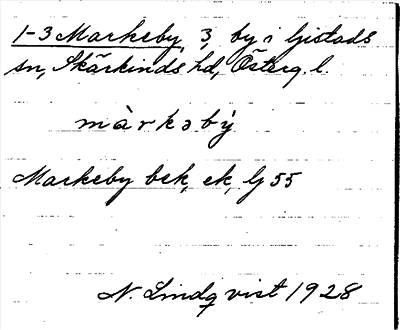 1-3 Markeby, 3, by i Gistads
sn, Skärkinds hd, Österg. l.
màrkəbý
Markeby bek, ek, Lj 55
N. Lindqvist 1928